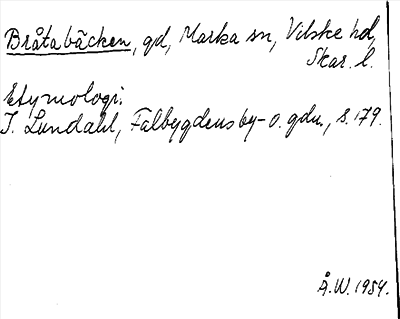 Bråtabäcken, gd, Marka sn, Vilske hd,
Skar. l.
Etymologi:
I. Lundahl, Falbygdens by- o. gdn., s. 179.
Å.W. 1954.